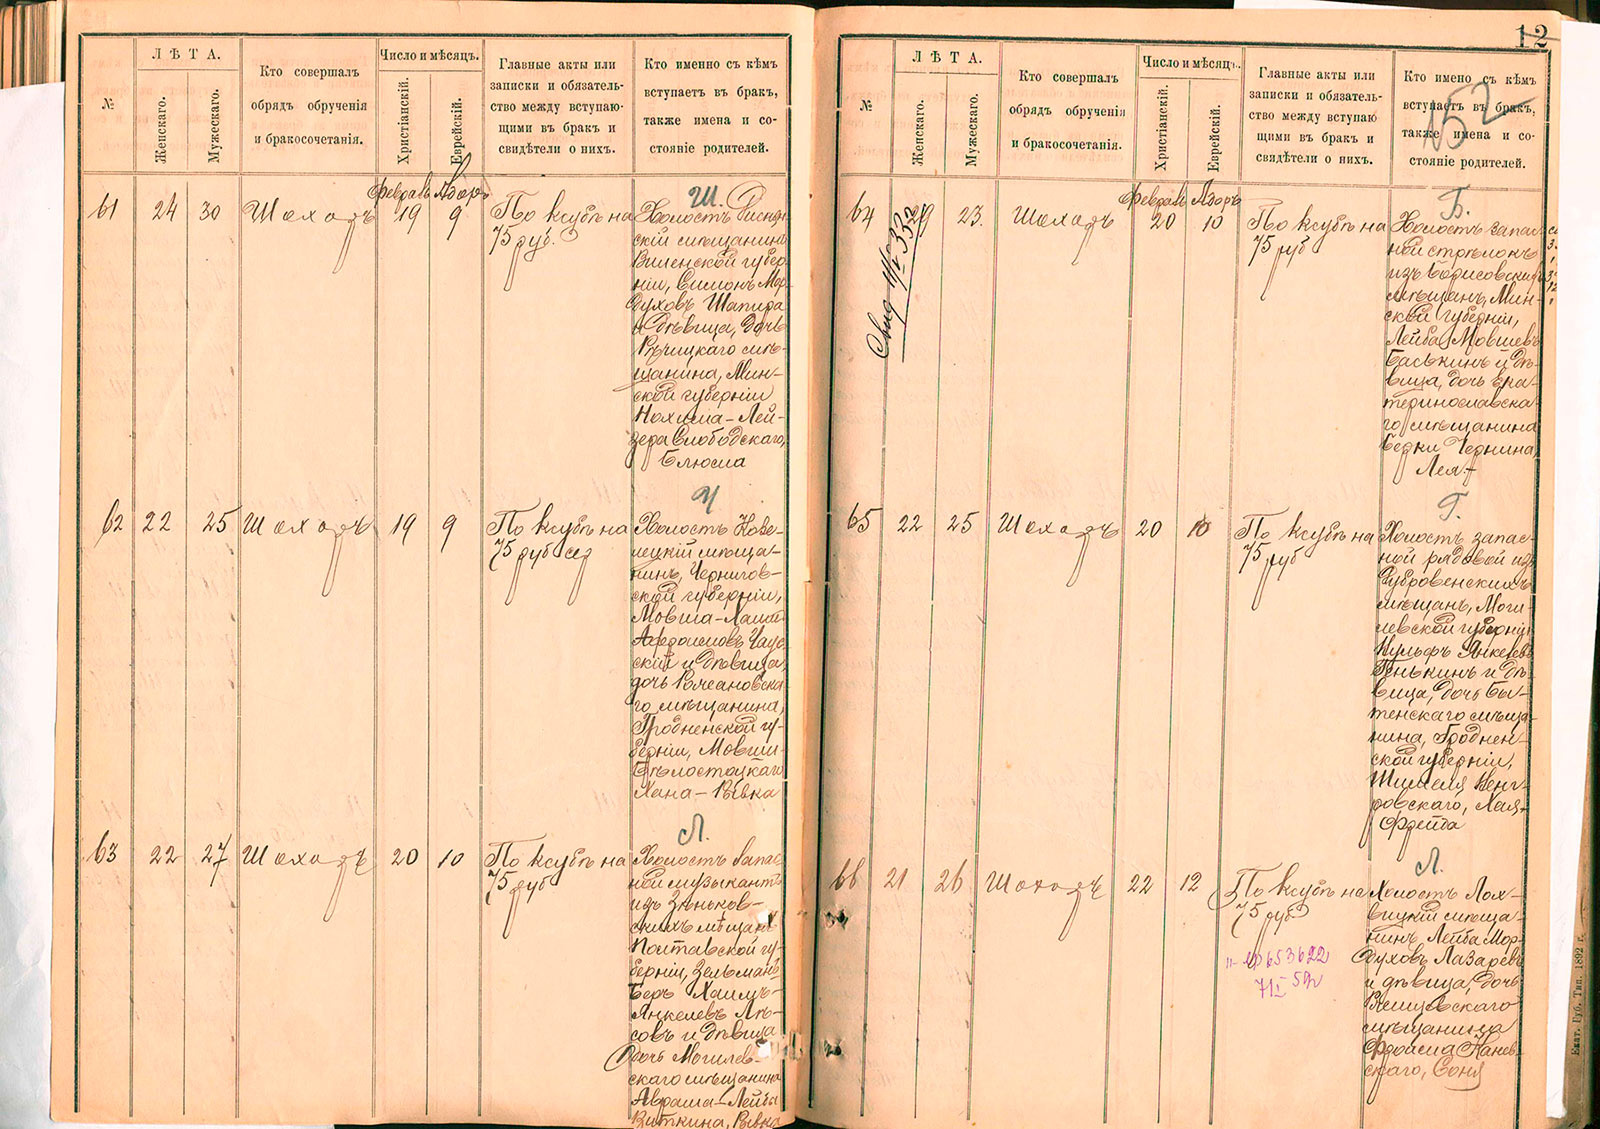 12
152
№
ЛѢТА.
Женскаго.
Мужескаго.
Кто совершалъ
обрядъ обрученія
и бракосочетанія.
Число и мѣсяцъ.
Христіанскій.
Еврейскій.
Главные акты или
записки и обязатель-
ство между вступаю-
щими въ бракъ и
свидѣтели о нихъ.
Кто именно съ кѣмъ
вступаетъ въ бракъ,
также имена и со-
стояніе родителей.
Февраль Адаръ
61 24 30 Шохатъ 19 9
По ксубѣ на
75 руб.
Ш.
Холостъ Диснен-
скій мѣщанинъ
Виленской губер-
ніи, Симонъ Мор-
духовъ Шапира
и дѣвица, дочь
Рѣчицкаго мѣ-
щанина, Мин-
ской губерніи
Нохима-Лей-
зера Слободскаго,
Блюма
62 22 25 Шохатъ 19 9
По ксубѣ на
75 руб сер
Ч
Холостъ Ново-
мѣщa-
нинъ, Чернигов-
ской губерніи,
Мовша-Хаимъ
скій и дѣвица
дочь
го мѣщанина,
Гродненской гу-
берніи, Мовши
Бѣлостоцкаго
Хана-Ривка
63 22 27 Шохатъ 20 10
По ксубѣ на
75 руб
Л.
Холостъ запас-
ной музыкантъ
изъ Зѣньков-
скихъ мѣщанъ
Полтавской гу-
берніи, Зельманъ
Беръ Хаимъ-
Янкелевъ Лѣ-
совъ и дѣвица
дочь Могилев-
скаго мѣщанина
Авраама-Лейбы
Виткина, Ривка
№
ЛѢТА.
Женскаго.
Мужескаго.
Кто совершалъ
обрядъ обрученія
и бракосочетанія.
Число и мѣсяцъ.
Христіанскій.
Еврейскій.
Главные акты или
записки и обязатель-
ство между вступаю
щими въ бракъ и
свидѣтели о нихъ.
Кто имено съ кѣмъ
вступаетъ въ бракъ,
также имена и со-
стояніе родителей.
Февраль Адаръ
64 29 23. Шохатъ 20 10
Свид № 332
По ксубѣ на
75 руб
Б.
Холостъ запас-
ной стрѣлокъ
изъ Борисовскихъ
мѣщанъ, Мин-
ской губерніи,
Лейба Мовшевъ
Баськинъ и дѣ-
вица, дочь Ека-
теринославска-
го мѣщанина
Берки Чернина,
Лея.
65 22 25 Шохатъ 20 10
По ксубѣ на
75 руб
Г.
Холостъ запас-
ной рядовой изъ
Дубровенскихъ
мѣщанъ, Моги-
левской губерніи
Вульфъ Янкелевъ
Генькинъ и дѣ-
вица, дочь Бы-
тенскаго мѣща-
нина, Гроднен-
ской губерніи,
Шмаеля Венг-
ровскаго, Хая-
Фрейда
66 21 26 Шохатъ 22 12
По ксубѣ на
75 руб
653622
7/I 59
Л.
Холостъ Лох-
вицкій мѣща-
нинъ Лейба Мор-
духовъ Лазаревъ
и дѣвица, дочь
мѣщанина
Фроима Канев-
скаго, Соня
Екат. Губ. Тип. 1892 г.